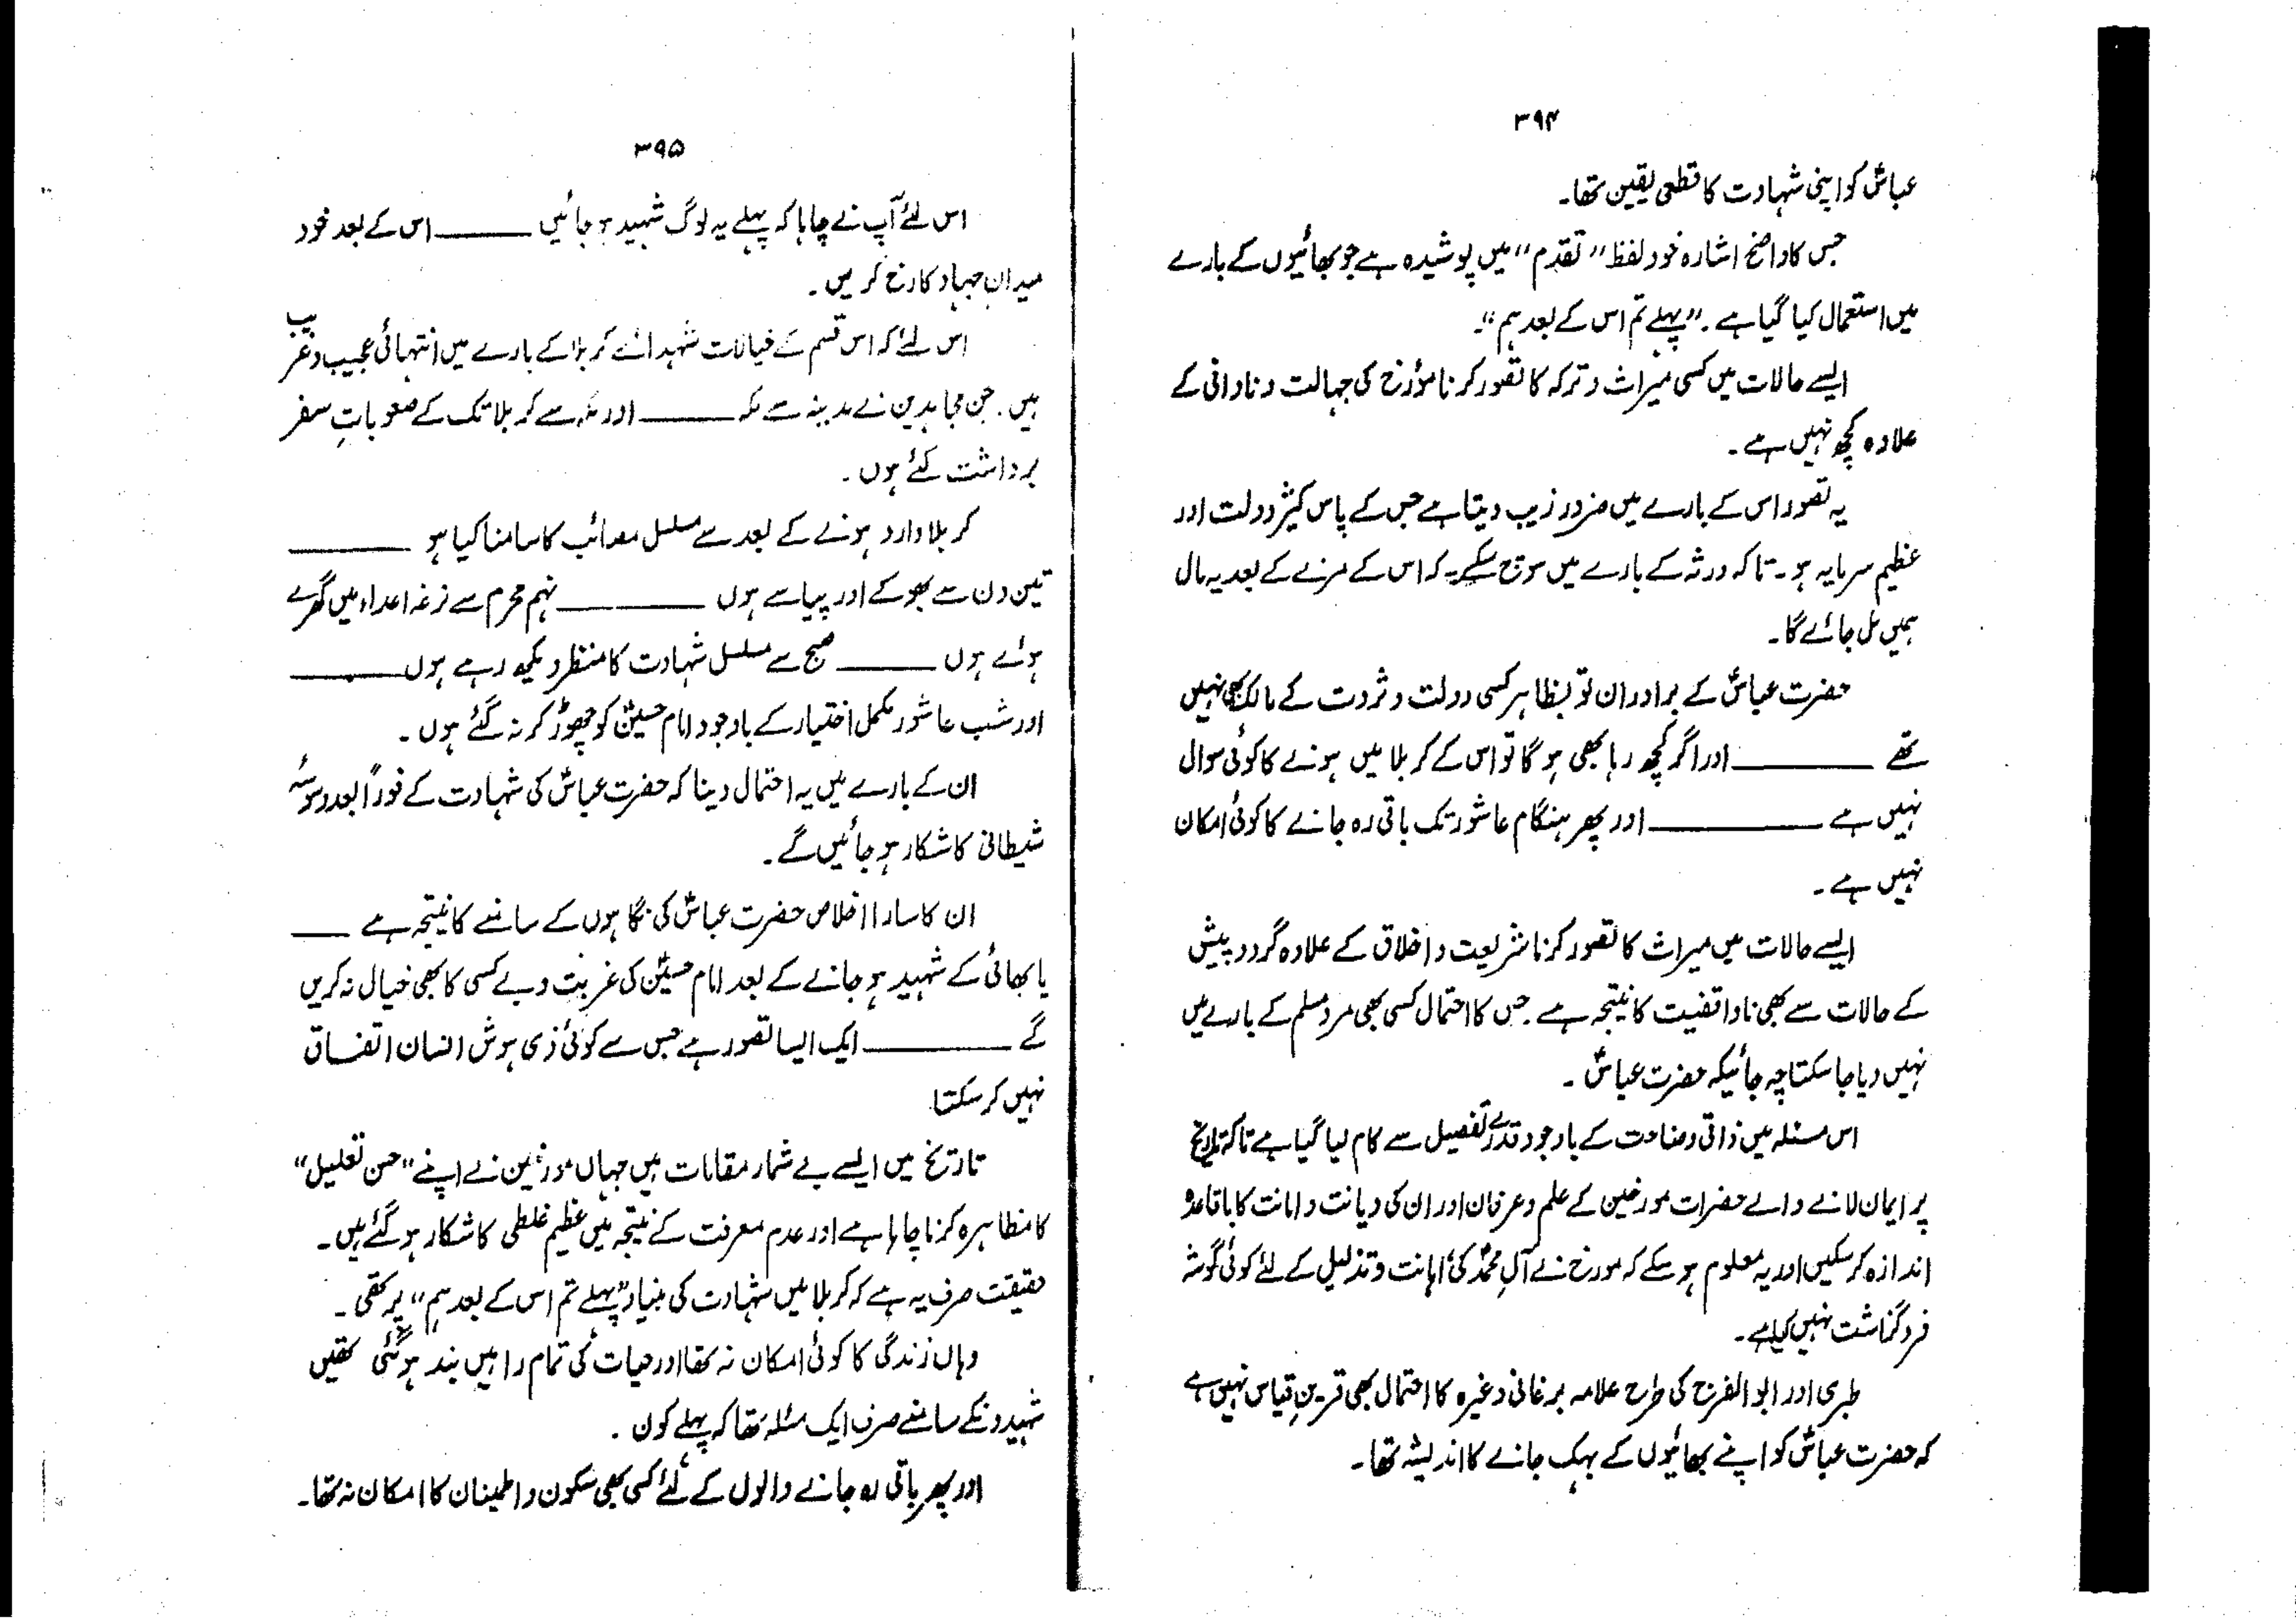 ۳۹۴
عباسؑ کو اپنی شہادت کا قطعی یقین تھا۔
جس کا واضح اشارہ خود لفظ "تقدم" میں پوشیدہ ہے جو بھائیوں کے بارے
میں استعمال کیا گیا ہے۔ "پہلے تم اس کے بعد ہم"۔
ایسے حالات میں کسی میراث و ترکہ کا تصور کرنا مؤرخ کی جہالت و نادانی کے
علاوہ کچھ نہیں ہے۔
یہ تصور اس کے بارے میں ضرور زیب دیتا ہے جس کے پاس کثیر دولت اور
عظیم سرمایہ ہو۔ تاکہ ورثہ کے بارے میں سوچ سکے کہ اس کے مرنے کے بعد یہ مال
ہمیں مل جائے گا۔
حضرت عباسؑ کے برادران تو بظاہر کسی دولت و ثروت کے مالک بھی نہیں
تھے ——— اور اگر کچھ رہا بھی ہو گا تو اس کے کربلا میں ہونے کا کوئی سوال
نہیں ہے ——— اور پھر ہنگام عاشور تک باقی رہ جانے کا کوئی امکان
نہیں ہے۔
ایسے حالات میں میراث کا تصور کرنا شریعت و اخلاق کے علاوہ گرد و پیش
کے حالات سے بھی ناواقفیت کا نتیجہ ہے جس کا احتمال کسی بھی مرد مسلم کے بارے میں
نہیں دیا جا سکتا چہ جائیکہ حضرت عباسؑ۔
اس مسئلہ میں ذاتی وضاحت کے باوجود قدرے تفصیل سے کام لیا گیا ہے تاکہ تاریخ
پر ایمان لانے والے حضرات مورخین کے علم و عرفان اور ان کی دیانت و امانت کا باقاعدہ
اندازہ کر سکیں اور یہ معلوم ہو سکے کہ مورخ نے آلِ محمدؐ کی اہانت و تذلیل کے لئے کوئی گوشہ
فروگزاشت نہیں کیا ہے۔
طبری اور ابو الفرج کی طرح علامہ برغانی وغیرہ کا احتمال بھی قرینِ قیاس نہیں ہے
کہ حضرت عباسؑ کو اپنے بھائیوں کے بہک جانے کا اندیشہ تھا۔
۳۹۵
اس لئے آپ نے چاہا کہ پہلے یہ لوگ شہید ہو جائیں ——— اس کے بعد خود
میدانِ جہاد کا رخ کریں۔
اس لئے کہ اس قسم کے خیالات شہدائے کربلا کے بارے میں انتہائی عجیب و غریب
ہیں۔ جن مجاہدین نے مدینہ سے مکہ ——— اور مکہ سے کربلا تک کے صعوباتِ سفر
برداشت کئے ہوں۔
کربلا وارد ہونے کے بعد سے مسلسل مصائب کا سامنا کیا ہو ———
تین دن سے بھوکے اور پیاسے ہوں ——— نہم محرم سے نرغہ اعداء میں گھرے
ہوئے ہوں ——— صبح سے مسلسل شہادت کا منظر دیکھ رہے ہوں ———
اور شب عاشور مکمل اختیار کے باوجود امام حسینؑ کو چھوڑ کر نہ گئے ہوں۔
ان کے بارے میں یہ احتمال دینا کہ حضرت عباسؑ کی شہادت کے فوراً بعد وسوسۂ
شیطانی کا شکار ہو جائیں گے۔
ان کا سارا اخلاص حضرت عباسؑ کی نگاہوں کے سامنے کا نتیجہ ہے ———
یا بھائی کے شہید ہو جانے کے بعد امام حسینؑ کی غربت و بے کسی کا بھی خیال نہ کریں
گے ——— ایک ایسا تصور ہے جس سے کوئی ذی ہوش انسان اتفاق
نہیں کر سکتا۔
تاریخ میں ایسے بے شمار مقامات ہیں جہاں مورخین نے اپنے "حسن تعلیل"
کا مظاہرہ کرنا چاہا ہے اور عدم معرفت کے نتیجہ میں عظیم غلطی کا شکار ہو گئے ہیں۔
حقیقت صرف یہ ہے کہ کربلا میں شہادت کی بنیاد "پہلے تم اس کے بعد ہم" پر تھی۔
وہاں زندگی کا کوئی امکان نہ تھا اور حیات کی تمام راہیں بند ہو گئی تھیں
شہیدوں کے سامنے صرف ایک مسئلہ تھا کہ پہلے کون۔
اور پھر باقی رہ جانے والوں کے لئے کسی بھی سکون و اطمینان کا امکان نہ تھا۔